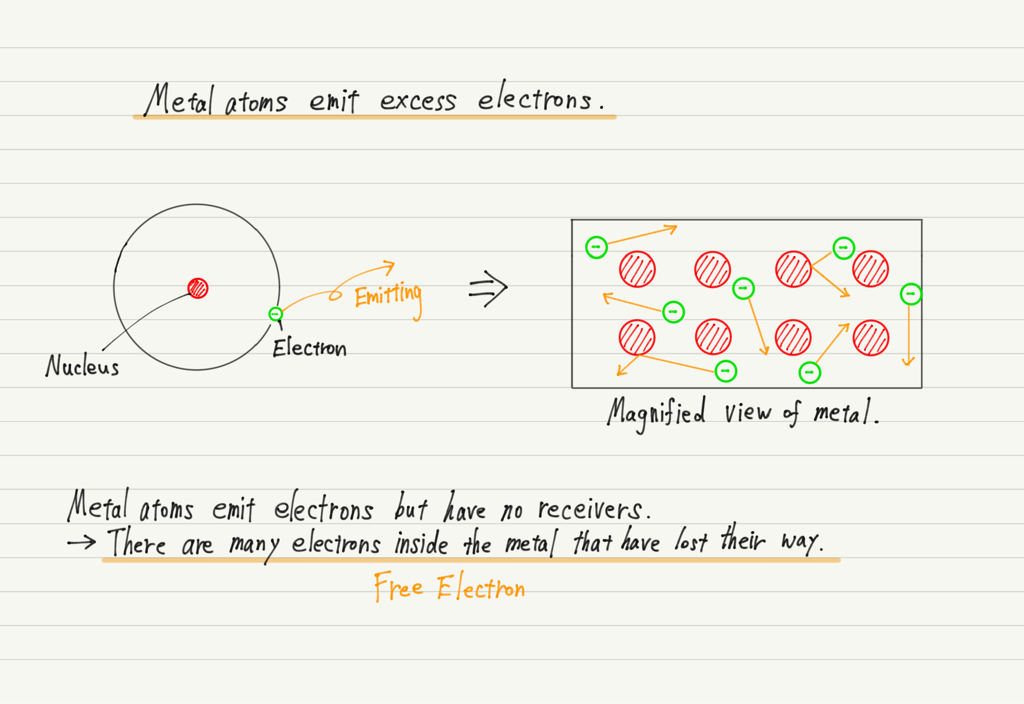 Metal atoms emit excess electrons.
Emitting
Electron
Nucleus
⇒
Magnified view of metal.
Metal atoms emit electrons but have no receivers.
→ There are many electrons inside the metal that have lost their way.
Free Electron